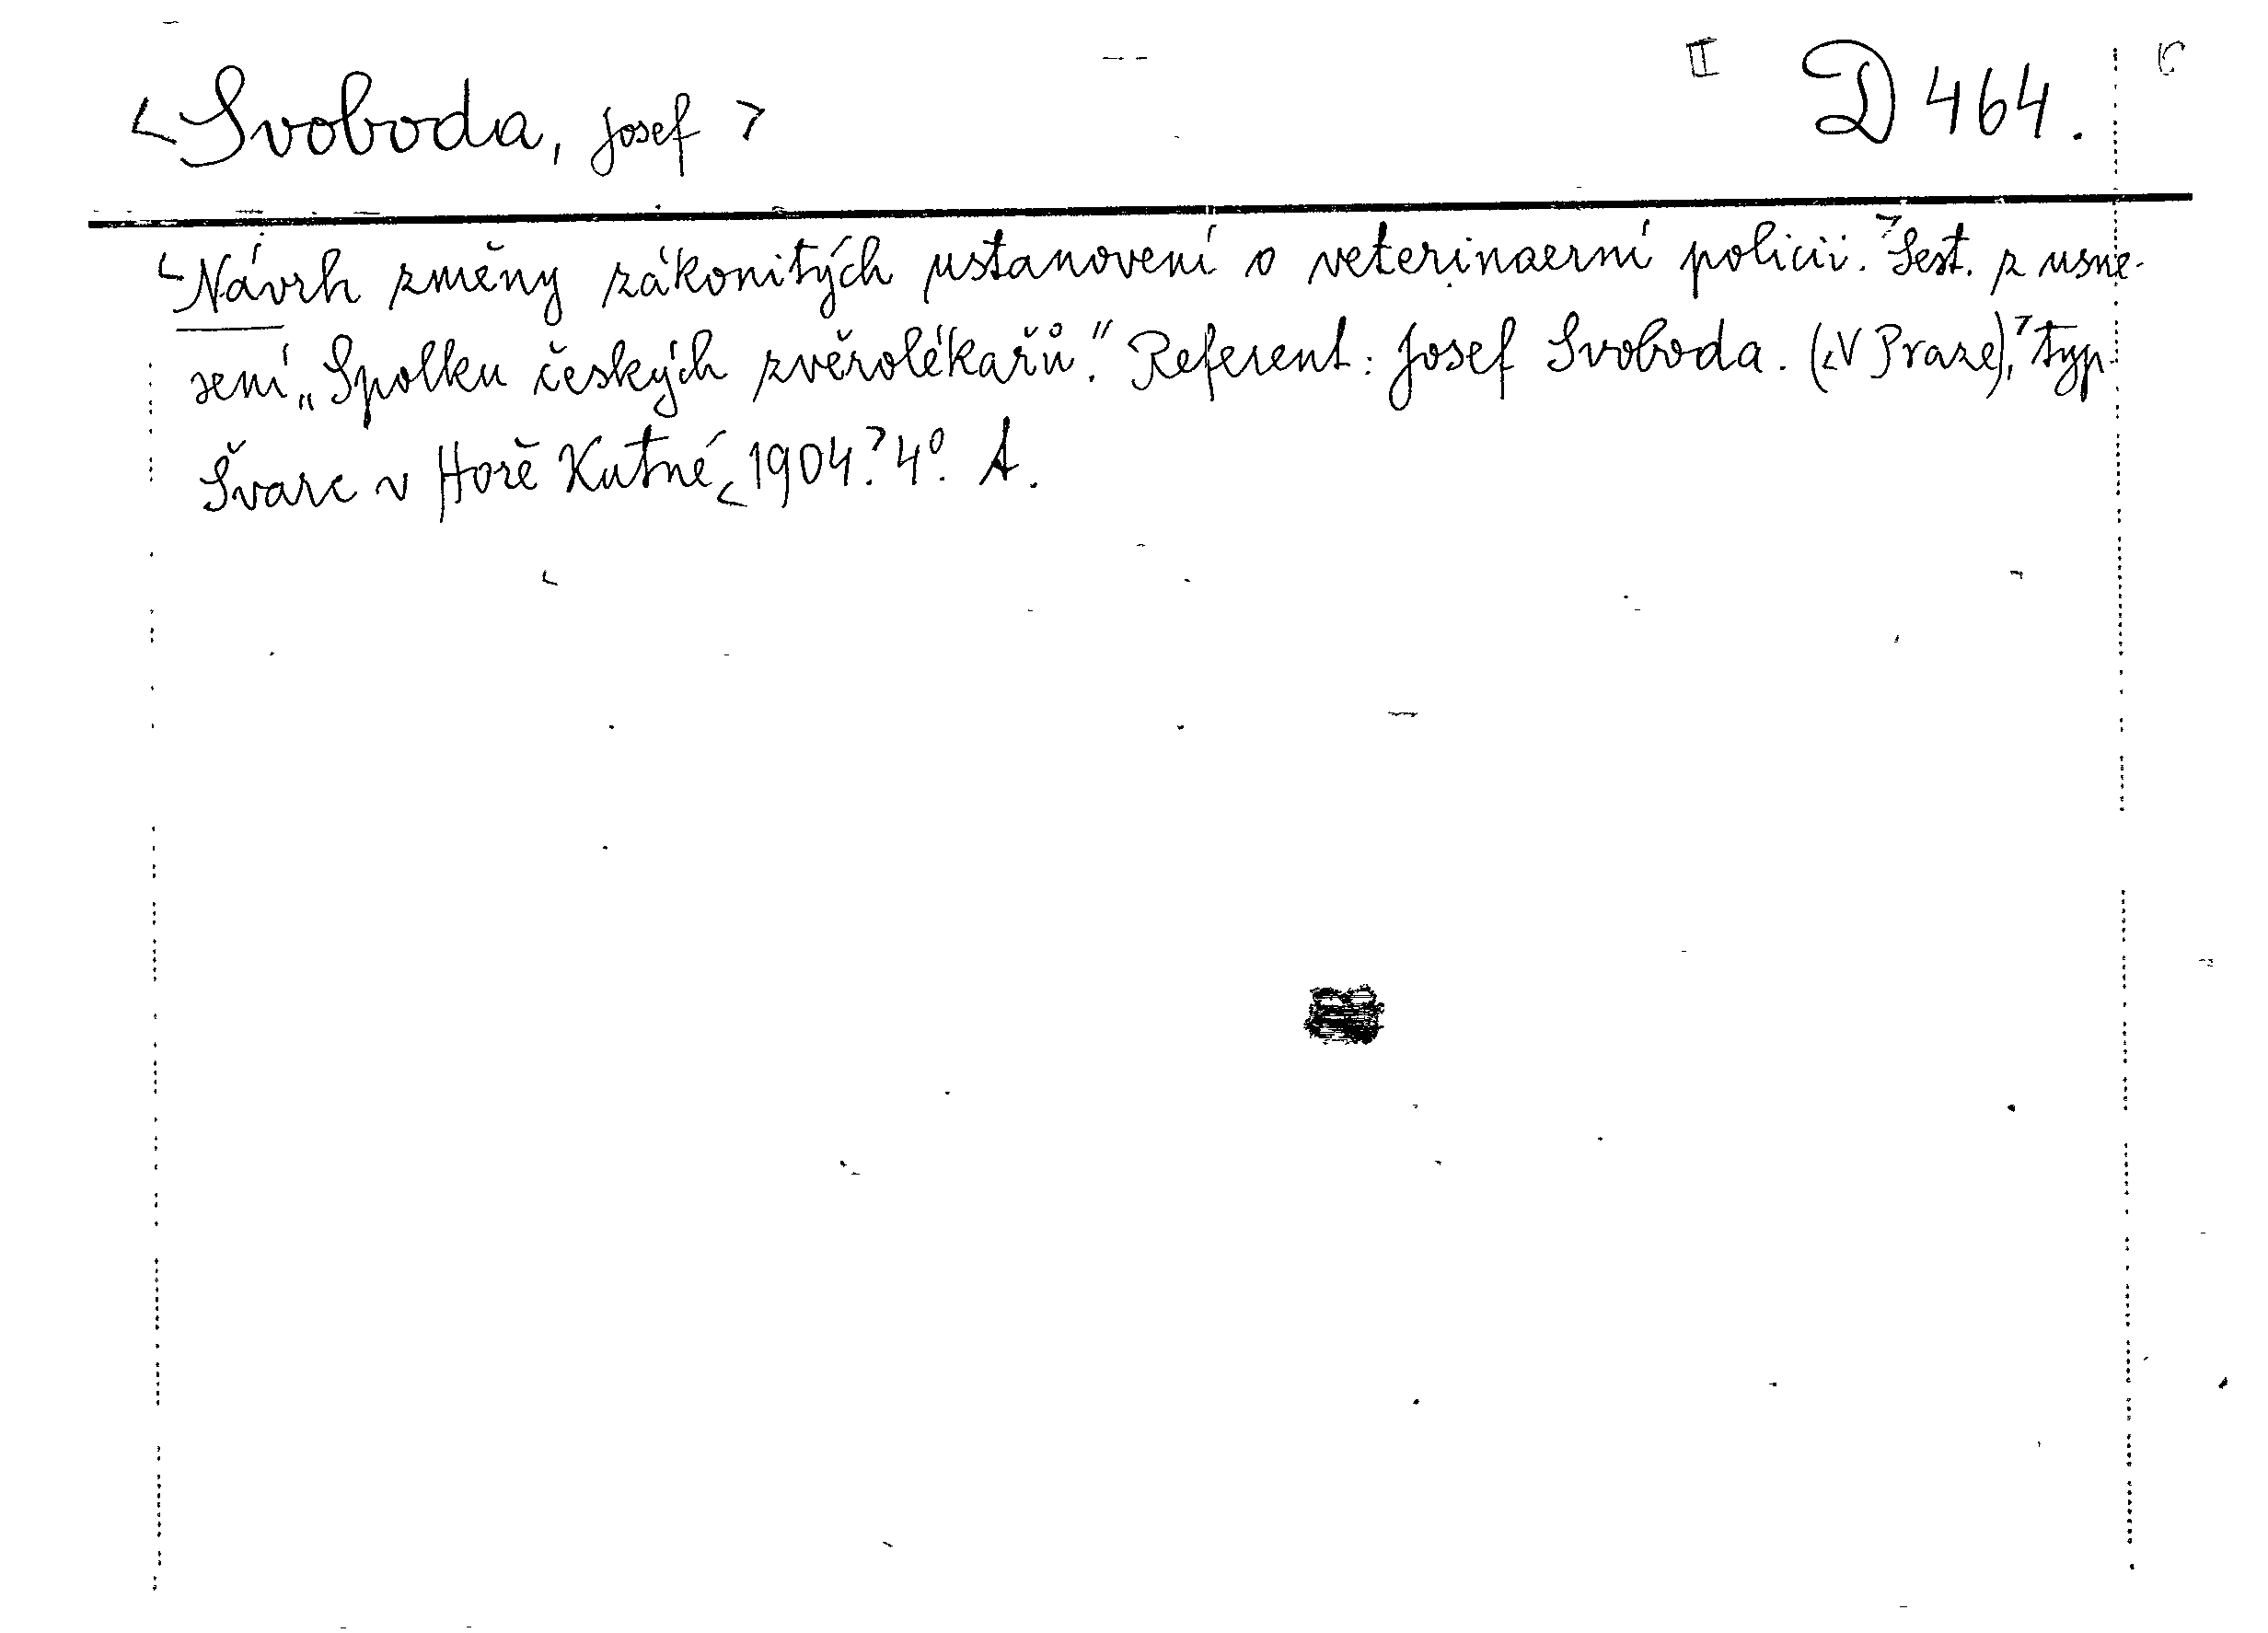 <Svoboda, Josef> II D 464.
<Návrh změny zákonitých ustanovení o veterinaerní policii.> Sest. z usne-
sení „Spolku českých zvěrolékařů." Referent: Josef Svoboda. (<V Praze),> typ.
Švarc v Hoře Kutné <1904.> 4°. A.